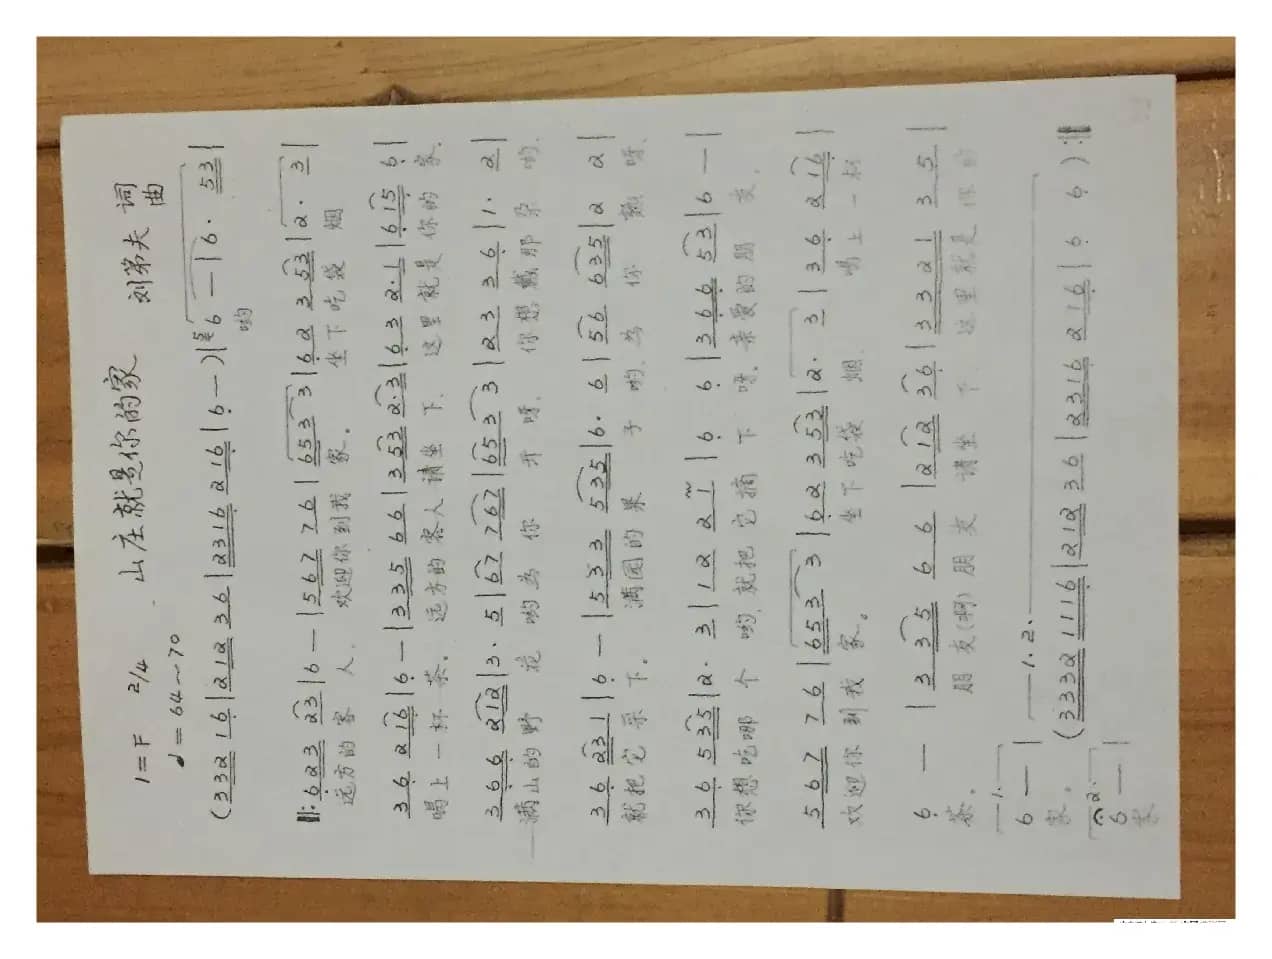 山庄就是你的家
1=F 2/4 刘第夫 词曲
♩=64~70
(332 16 | 212 36 | 2316 216 | 6 — ) | 6 — | 6· 53 |
哟
‖: 623 23 | 6 — | 567 76 | 653 3 | 62 353 | 2· 3 |
远方的客人. 欢迎你到我家。坐下吃袋烟
36 216 | 6 — | 335 66 | 353 2·3 | 63 2·1 | 615 6 |
喝上一杯茶。远方的客人请坐下. 这里就是你的家.
366 212 | 3· 5 | 67 767 | 653 3 | 23 36 | 1· 2 |
满山的野花哟为你开呀. 你想戴那朵哟.
36 231 | 6 — | 533 535 | 6· 6 | 56 635 | 2 2 |
就把它采下。满园的果子哟. 为你额呀.
36 535 | 2· 3 | 12 21 | 6 6 | 366 53 | 6 — |
你想吃哪个哟, 就把它摘下呀. 亲爱的朋友.
567 76 | 653 3 | 62 353 | 2· 3 | 36 216 |
欢迎你到我家。坐下吃袋烟. 喝上一杯
6 — | 3 35 6 6 | 212 36 | 3321 35 |
茶。朋友(啊)朋友请坐下 这里就是你的
1. 1.2.
6 — | (3332 1116 | 212 36 | 2316 216 | 6 6 ) :‖
家。
2.
6 — |
家